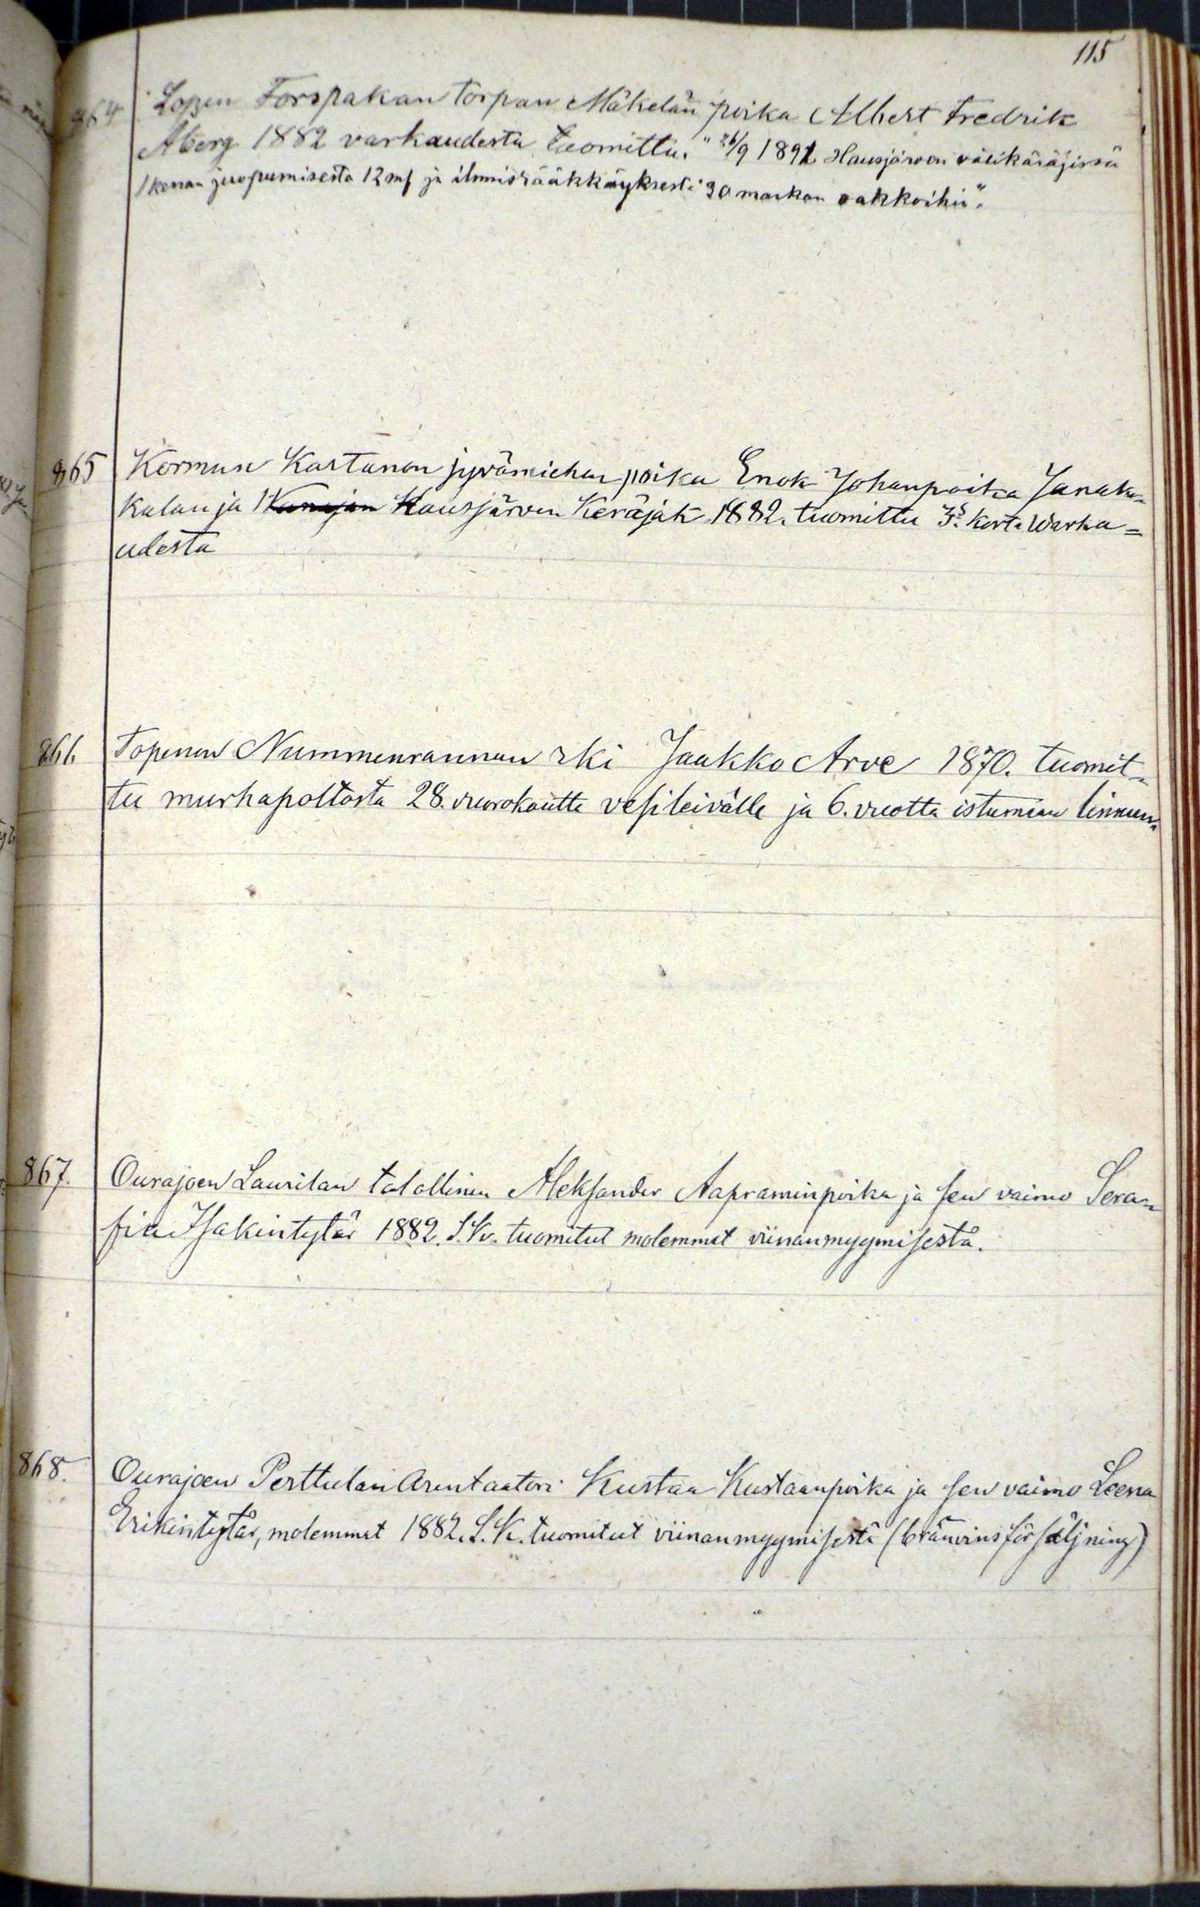 115
864 Lopen Forspakan torpan Mäkelän poika Albert Fredrik
Åberg 1882 varkaudesta tuomittu. " 26/9 1892 Hausjärven välikäräjissä
1 kerran juopumisesta 12 mf ja ihmisrääkkäyksestä 30 markan sakkoihin".
865 Kormun Kartanon jyvämiehen poika Enok Johanpoika Janak=
kalan ja Hausjärven Keräjät 1882. tuomittu 3s kerta Warka=
udesta
866 Topenon Nummenrannan rki Jaakko Arve 1870. tuomit=
tu murhapoltosta 28. vuorokautta vesileivälle ja 6. vuotta istumaan linnan.
867. Ourajoen Laurilan talollinen Aleksander Aapraminpoika ja sen vaimo Sera=
fia Isakintytär 1882. S.K. tuomitut molemmat viinanmyymisestä.
868. Ourajoen Perttulan Arentaatori Kustaa Kustaanpoika ja sen vaimo Leena
Erikintytär, molemmat 1882. S.K. tuomitut viinanmyymisestä (brännvinsförsäljning)